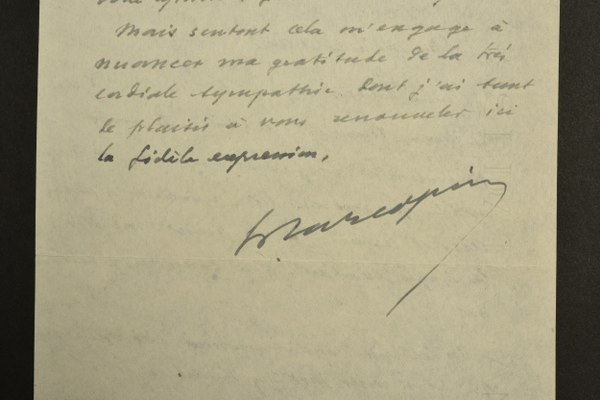 Mais surtout cela m'engage à
nuancer ma gratitude de la très
cordiale sympathie dont j'ai tant
de plaisir à vous renouveler ici
la fidèle expression.